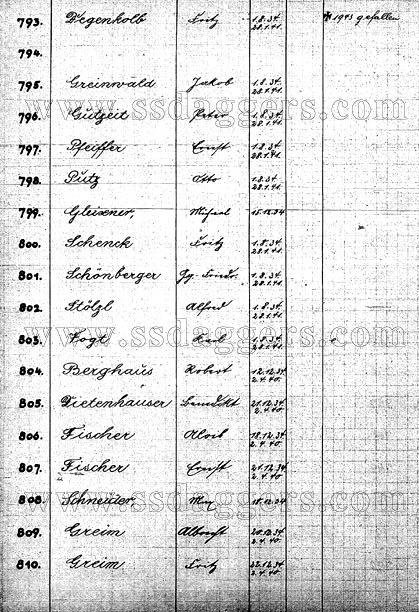 793. Degenkolb Fritz 1.8.34. ✠ 1943 gefallen
28.1.41.
794.
795. Greinwald Jakob 1.8.34.
28.1.41.
www.ssdaggers.com
796. Gutzeit Peter 1.8.34.
28.1.41.
797. Pfeiffer Ernst 1.8.34.
28.1.41.
798. Putz Otto 1.8.34
28.1.41.
799. Gleixner, Michael 15.12.34
800. Schenck Fritz 1.8.34.
28.1.41.
801. Schönberger Gg. Friedr. 1.8.34.
28.1.41.
802. Stölzl Alfred 1.8.34.
28.1.41.
www.ssdaggers.com
803. Vogt Karl 1.8.34.
28.1.41.
804. Berghaus Robert 12.12.34
2.4.40.
805. Dietenhauser Benedikt 21.12.34
2.4.40.
806. Fischer Alois 18.12.34.
2.4.40.
807. Fischer Ernst 21.12.34
2.4.40.
808. Schneider Max 18.12.34
www.ssdaggers.com
809. Greim Albrecht 20.12.34
2.4.40.
810. Greim Fritz 22.12.34
2.4.40.